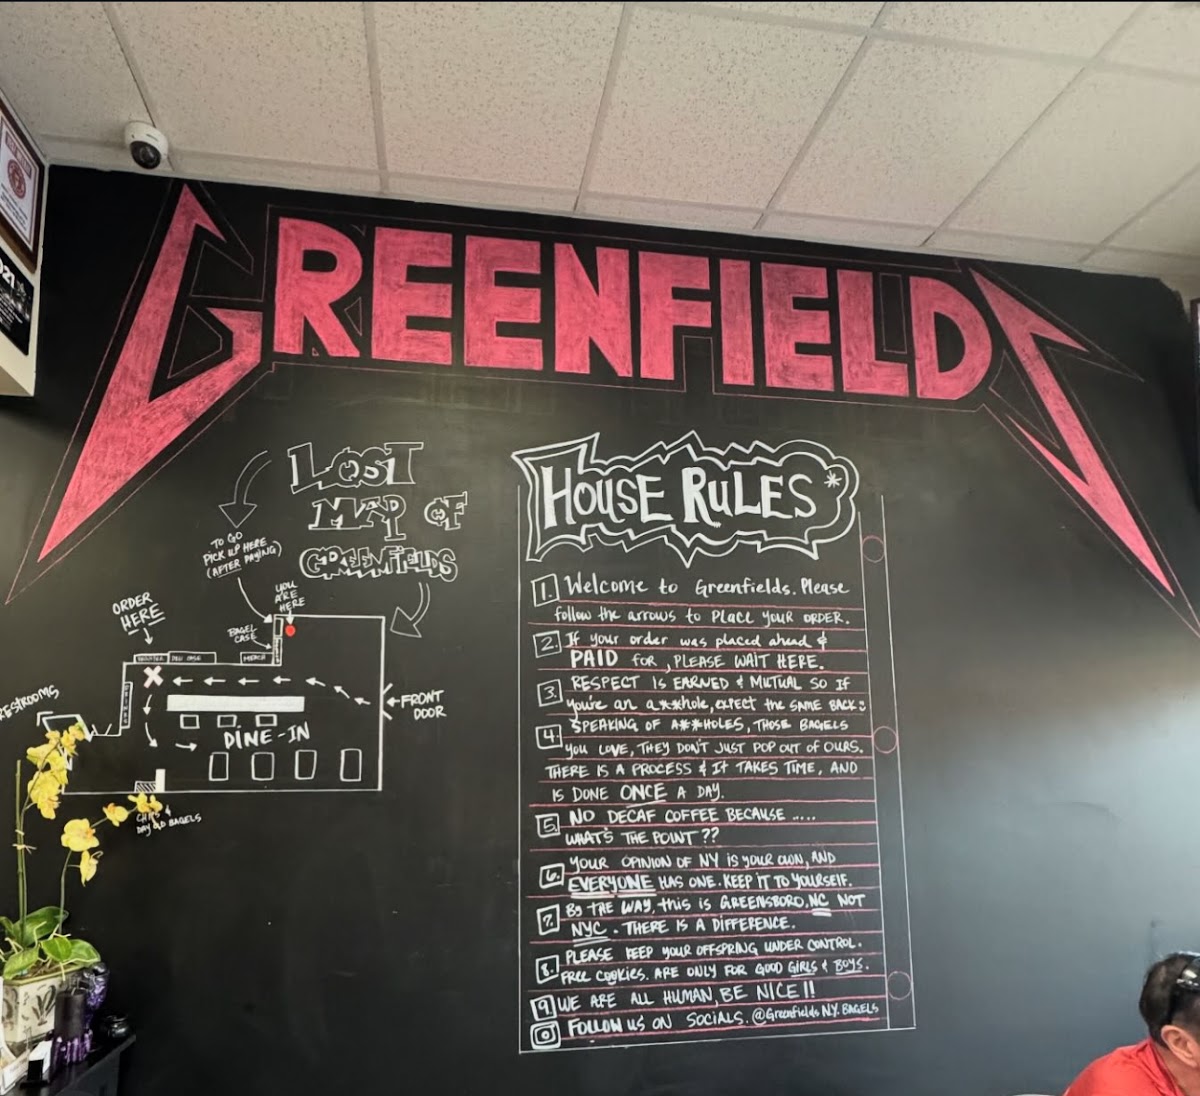 GREENFIELDS
LOST
MAP OF
GREENFIELDS
TO GO
PICK UP HERE
(AFTER PAYING)
YOU
ARE
HERE
ORDER
HERE
BAGEL
CASE
REGISTER
DELI CASE
MERCH
RESTROOMS
FRONT
DOOR
DINE-IN
CHIPS &
DAY OLD BAGELS
HOUSE RULES*
1. Welcome to Greenfields. Please
follow the arrows to PLACE YOUR ORDER.
2. If your order was placed ahead &
PAID for, PLEASE WAIT HERE.
3. RESPECT IS EARNED & MUTUAL SO IF
you're an a**hole, expect the SAME BACK:
4. SPEAKING OF A**HOLES, THOSE BAGELS
YOU LOVE, THEY DON'T JUST POP OUT OF OURS.
THERE IS A PROCESS & IT TAKES TIME, AND
IS DONE ONCE A DAY.
5. NO DECAF COFFEE BECAUSE .....
WHAT'S THE POINT??
6. YOUR OPINION OF NY IS YOUR OWN, AND
EVERYONE HAS ONE. KEEP IT TO YOURSELF.
7. By THE WAY, this is GREENSBORO, NC NOT
NYC. THERE IS A DIFFERENCE.
8. PLEASE KEEP YOUR OFFSPRING UNDER CONTROL.
FREE COOKIES. ARE ONLY FOR GOOD GIRLS & BOYS.
9. WE ARE ALL HUMAN, BE NICE!!
FOLLOW US ON SOCIALS. @Greenfields N.Y. BAGELS